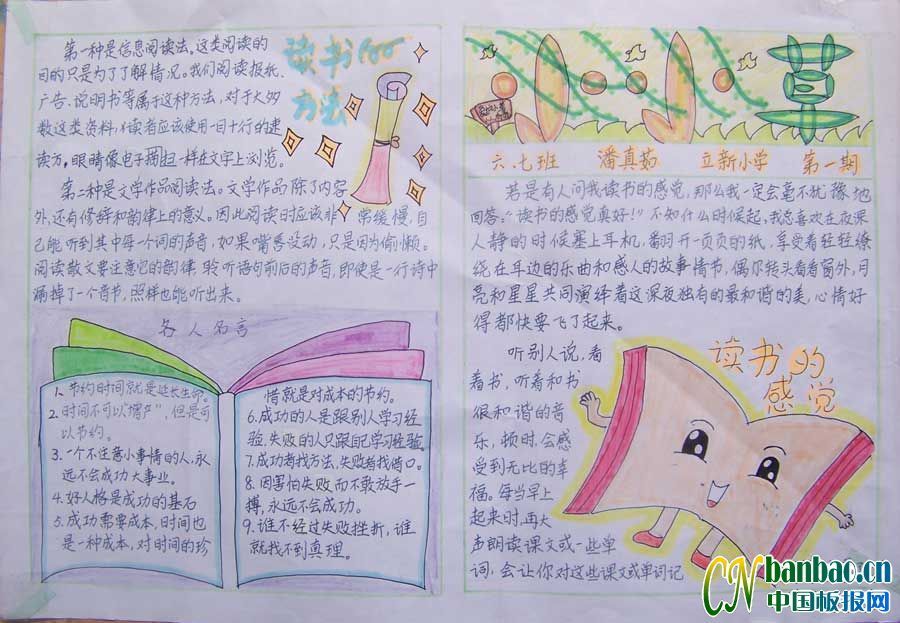 读书的
方法
第一种是信息阅读法。这类阅读的
目的只是为了了解情况。我们阅读报纸、
广告、说明书等属于这种方法，对于大多
数这类资料，读者应该使用一目十行的速
读方，眼睛像电子扫一样在文字上浏览。
第二种是文学作品阅读法。文学作品除了内容
外，还有修辞和韵律上的意义。因此阅读时应该非常缓慢，自
己能听到其中每个词的声音，如果嘴唇没动，只是因为偷懒。
阅读散文要注意它的韵律，聆听语句前后的声音，即使是一行诗中
漏掉了一个音节，照样也能听出来。
名人名言
1、节约时间就是延长生命。
2、时间不可以增产，但是可
以节约。
3、一个不注意小事情的人，永
远不会成功大事业。
4、好人格是成功的基石
5、成功需要成本，时间也
是一种成本，对时间的珍
惜就是对成本的节约。
6、成功的人是跟别人学习经
验，失败的人只跟自己学习经验。
7、成功者找方法，失败者找借口。
8、因害怕失败而不敢放手一
搏，永远不会成功。
9、谁不经过失败挫折，谁
就找不到真理。
六.七班 潘真茹 立新小学 第一期
若是有人问我读书的感觉，那么我一定会毫不犹豫地
回答：“读书的感觉真好！”不知什么时候起，我总喜欢在夜深
人静的时候塞上耳机，翻开一页页的纸，享受着轻轻缭
绕在耳边的乐曲和感人的故事情节，偶尔转头看看窗外，月
亮和星星共同演绎着这深夜独有的最和谐的美，心情好
得都快要飞了起来。
读书的
感觉
听别人说，看
着书，听着和书
很和谐的音
乐，顿时会感
受到无比的幸
福。每当早上
起来时，再大
声朗读课文或一些单
词，会让你对这些课文或单词记
CN banbao.cn
中国板报网